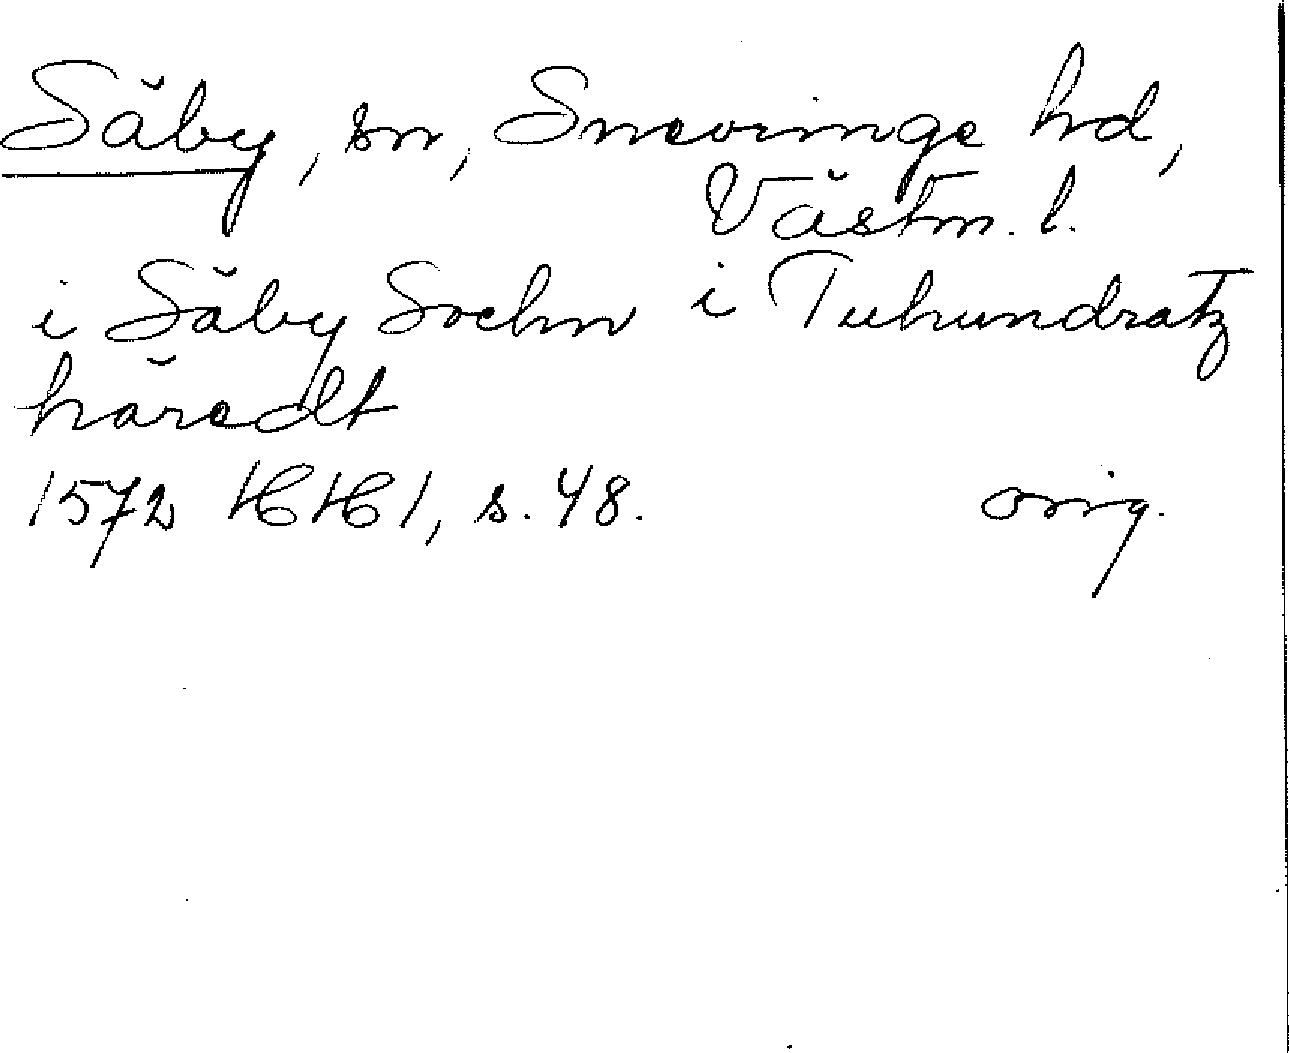 Säby, sn, Snevringe hd,
Västm. l.
i Säby Sochn i Tuhundratz
häredt
1572 HH 1, s. 48. orig.